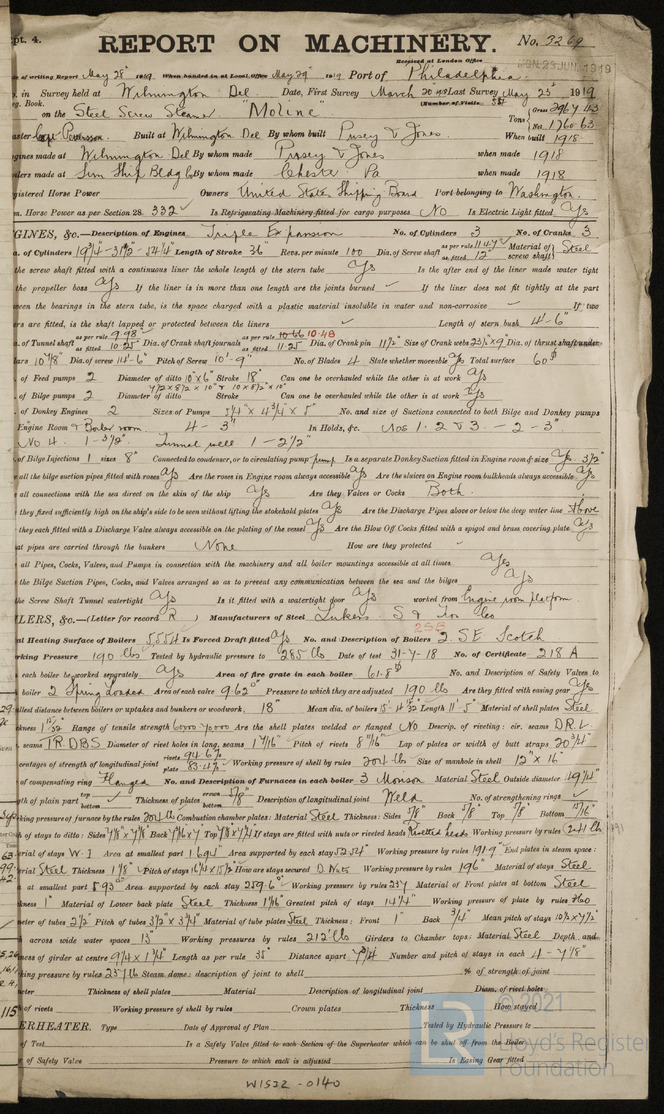 pt. 4.
REPORT ON MACHINERY. No. 3269
Received at London Office MON. 23 JUN. 1919
of writing Report May 28th 1919. When handed in at Local Office May 29th 1919 Port of Philadelphia.
in Survey held at Wilmington Del. Date, First Survey March 20th Last Survey May 23rd 1919
g. Book. (Number of Visits
on the Steel Screw Steamer "Moline" Tons { Gross 2967.43 Net 1760.63
aster Built at Wilmington Del By whom built Pusey & Jones. When built 1918
gines made at Wilmington Del By whom made Pusey & Jones when made 1918
ilers made at Sun Ship Bldg Co By whom made Chester Pa when made 1918
gistered Horse Power Owners United States Shipping Board Port belonging to Washington.
m. Horse Power as per Section 28. 332 ✓ Is Refrigerating Machinery fitted for cargo purposes No Is Electric Light fitted Yes
GINES, &c.—Description of Engines Triple Expansion No. of Cylinders 3 No. of Cranks 3
a. of Cylinders Length of Stroke 36 Revs. per minute 100 Dia. of Screw shaft as per rule 11.47 as fitted 12" Material of screw shaft } Steel
the screw shaft fitted with a continuous liner the whole length of the stern tube Yes Is the after end of the liner made water tight
the propeller boss Yes If the liner is in more than one length are the joints burned ✓ If the liner does not fit tightly at the part
een the bearings in the stern tube, is the space charged with a plastic material insoluble in water and non-corrosive ✓ If two
rs are fitted, is the shaft lapped or protected between the liners ✓ Length of stern bush 4'-6"
a. of Tunnel shaft as per rule 9.98 as fitted 10.25 Dia. of Crank shaft journals as per rule 10.66 10.48 as fitted 11.25 Dia. of Crank pin 11½" Size of Crank webs Dia. of thrust shaft under
lars 10⅞" Dia. of screw 14'-6" Pitch of Screw 10'-9" No. of Blades 4 State whether moveable Yes Total surface 60
of Feed pumps 2 Diameter of ditto 10"x6" Stroke 18" Can one be overhauled while the other is at work Yes
of Bilge pumps 2 Diameter of ditto Stroke Can one be overhauled while the other is at work Yes
of Donkey Engines 2 Sizes of Pumps No. and size of Suctions connected to both Bilge and Donkey pumps
Engine Room & Boiler room. 4 - 3" In Holds, &c. Nos 1. 2 & 3. - 2 - 3".
No 4. 1-3½" Tunnel well 1-2½"
of Bilge Injections 1 sizes 8" Connected to condenser, or to circulating pump pump Is a separate Donkey Suction fitted in Engine room & size Yes. 3½"
all the bilge suction pipes fitted with roses Yes Are the roses in Engine room always accessible Yes Are the sluices on Engine room bulkheads always accessible Yes
all connections with the sea direct on the skin of the ship Yes Are they Valves or Cocks Both.
they fixed sufficiently high on the ship's side to be seen without lifting the stokehold plates Yes Are the Discharge Pipes above or below the deep water line Above
they each fitted with a Discharge Valve always accessible on the plating of the vessel Yes Are the Blow Off Cocks fitted with a spigot and brass covering plate Yes
at pipes are carried through the bunkers None How are they protected ✓
all Pipes, Cocks, Valves, and Pumps in connection with the machinery and all boiler mountings accessible at all times Yes
the Bilge Suction Pipes, Cocks, and Valves arranged so as to prevent any communication between the sea and the bilges Yes
the Screw Shaft Tunnel watertight Yes Is it fitted with a watertight door Yes worked from Engine room platform
LERS, &c.—(Letter for record R) Manufacturers of Steel Lukens S & Iron Co
at Heating Surface of Boilers 5554 Is Forced Draft fitted Yes No. and Description of Boilers 2 SE Scotch 2SB
rking Pressure 190 lbs Tested by hydraulic pressure to 285 lb Date of test 31-7-18 No. of Certificate 218 A
each boiler be worked separately Yes Area of fire grate in each boiler 61.8 No. and Description of Safety Valves to
boiler 2 Spring Loaded Area of each valve 9.62 Pressure to which they are adjusted 190 lb Are they fitted with easing gear Yes
allest distance between boilers or uptakes and bunkers or woodwork. 18" Mean dia. of boilers Length 11'-5" Material of shell plates Steel
ckness Range of tensile strength 60000-70000 Are the shell plates welded or flanged No Descrip. of riveting: cir. seams D R. L.
seams T.R. D.B.S Diameter of rivet holes in long. seams 1 7/16" Pitch of rivets 8 11/16" Lap of plates or width of butt straps 20¾"
centages of strength of longitudinal joint rivets 94.6% plate 83.4% Working pressure of shell by rules 204 lb Size of manhole in shell 12" x 16"
of compensating ring Flanged No. and Description of Furnaces in each boiler 3 Morison Material Steel Outside diameter
th of plain part top bottom ✓ Thickness of plates crown bottom 5/8" Description of longitudinal joint Weld No. of strengthening rings ✓
king pressure of furnace by the rules 204 lb Combustion chamber plates: Material Steel Thickness: Sides 5/8" Back 5/8" Top 5/8" Bottom 15/16"
h of stays to ditto: Sides Back Top If stays are fitted with nuts or riveted heads Riveted heads Working pressure by rules (241 lb 191
erial of stays W. I Area at smallest part 1.694" Area supported by each stay 52.54" Working pressure by rules 191.9" End plates in steam space:
rial Steel Thickness 1⅛" Pitch of stays How are stays secured D. Nuts Working pressure by rules 196" Material of stays Steel
a at smallest part 5.93" Area supported by each stay 259.6" Working pressure by rules 237 Material of Front plates at bottom Steel
kness 1" Material of Lower back plate Steel Thickness Greatest pitch of stays 14¼" Working pressure of plate by rules 260
meter of tubes 2½" Pitch of tubes 3½" x 3¾" Material of tube plates Steel Thickness: Front 1" Back ¾" Mean pitch of stays
across wide water spaces 13" Working pressures by rules 212 lb Girders to Chamber tops: Material Steel Depth and
ness of girder at centre 9¼ x 1¾" Length as per rule 35" Distance apart 7¾" Number and pitch of stays in each 4 - 7⅛"
king pressure by rules 257 lb Steam dome: description of joint to shell % of strength of joint
eter Thickness of shell plates Material Description of longitudinal joint Diam. of rivet holes
of rivets Working pressure of shell by rules Crown plates Thickness How stayed
ERHEATER. Type Date of Approval of Plan Tested by Hydraulic Pressure to
of Test Is a Safety Valve fitted to each Section of the Superheater which can be shut off from the Boiler
of Safety Valve Pressure to which each is adjusted Is Easing Gear fitted
W1532-0140
© 2021
Lloyd's Register
Foundation
LR